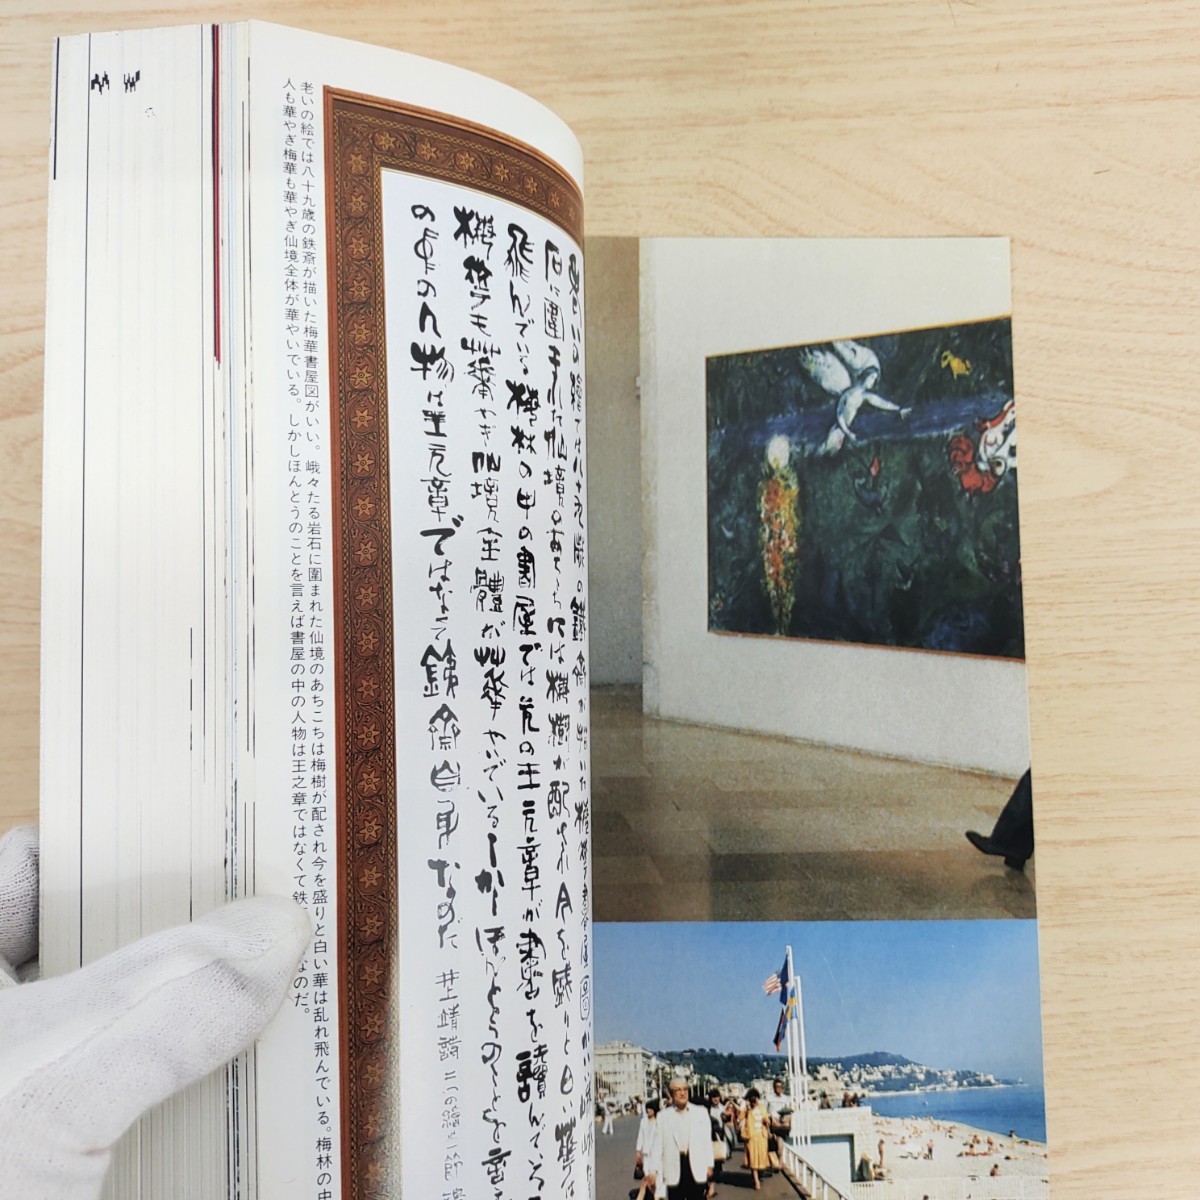 老いの繪では八十九歳の鐵齋が描いた梅華書屋圖がいい峨
石に圍まれた仙境のあちこちには梅樹が配され今を盛りと白い華は
飛んでいる梅林の中の書屋では元の王元章が書を讀んでいる
梅華も華やぎ仙境全體が華やいでいるしかしほんとうのことを言
の中の人物は王元章ではなくて鐵齋自身なのだ 井上靖詩 一節
老いの絵では八十九歳の鉄斎が描いた梅華書屋図がいい。峨々たる岩石に囲まれた仙境のあちこちは梅樹が配され今を盛りと白い華は乱れ飛んでいる。梅林の中
人も華やぎ梅華も華やぎ仙境全体が華やいでいる。しかしほんとうのことを言えば書屋の中の人物は王之章ではなくて鉄なのだ。